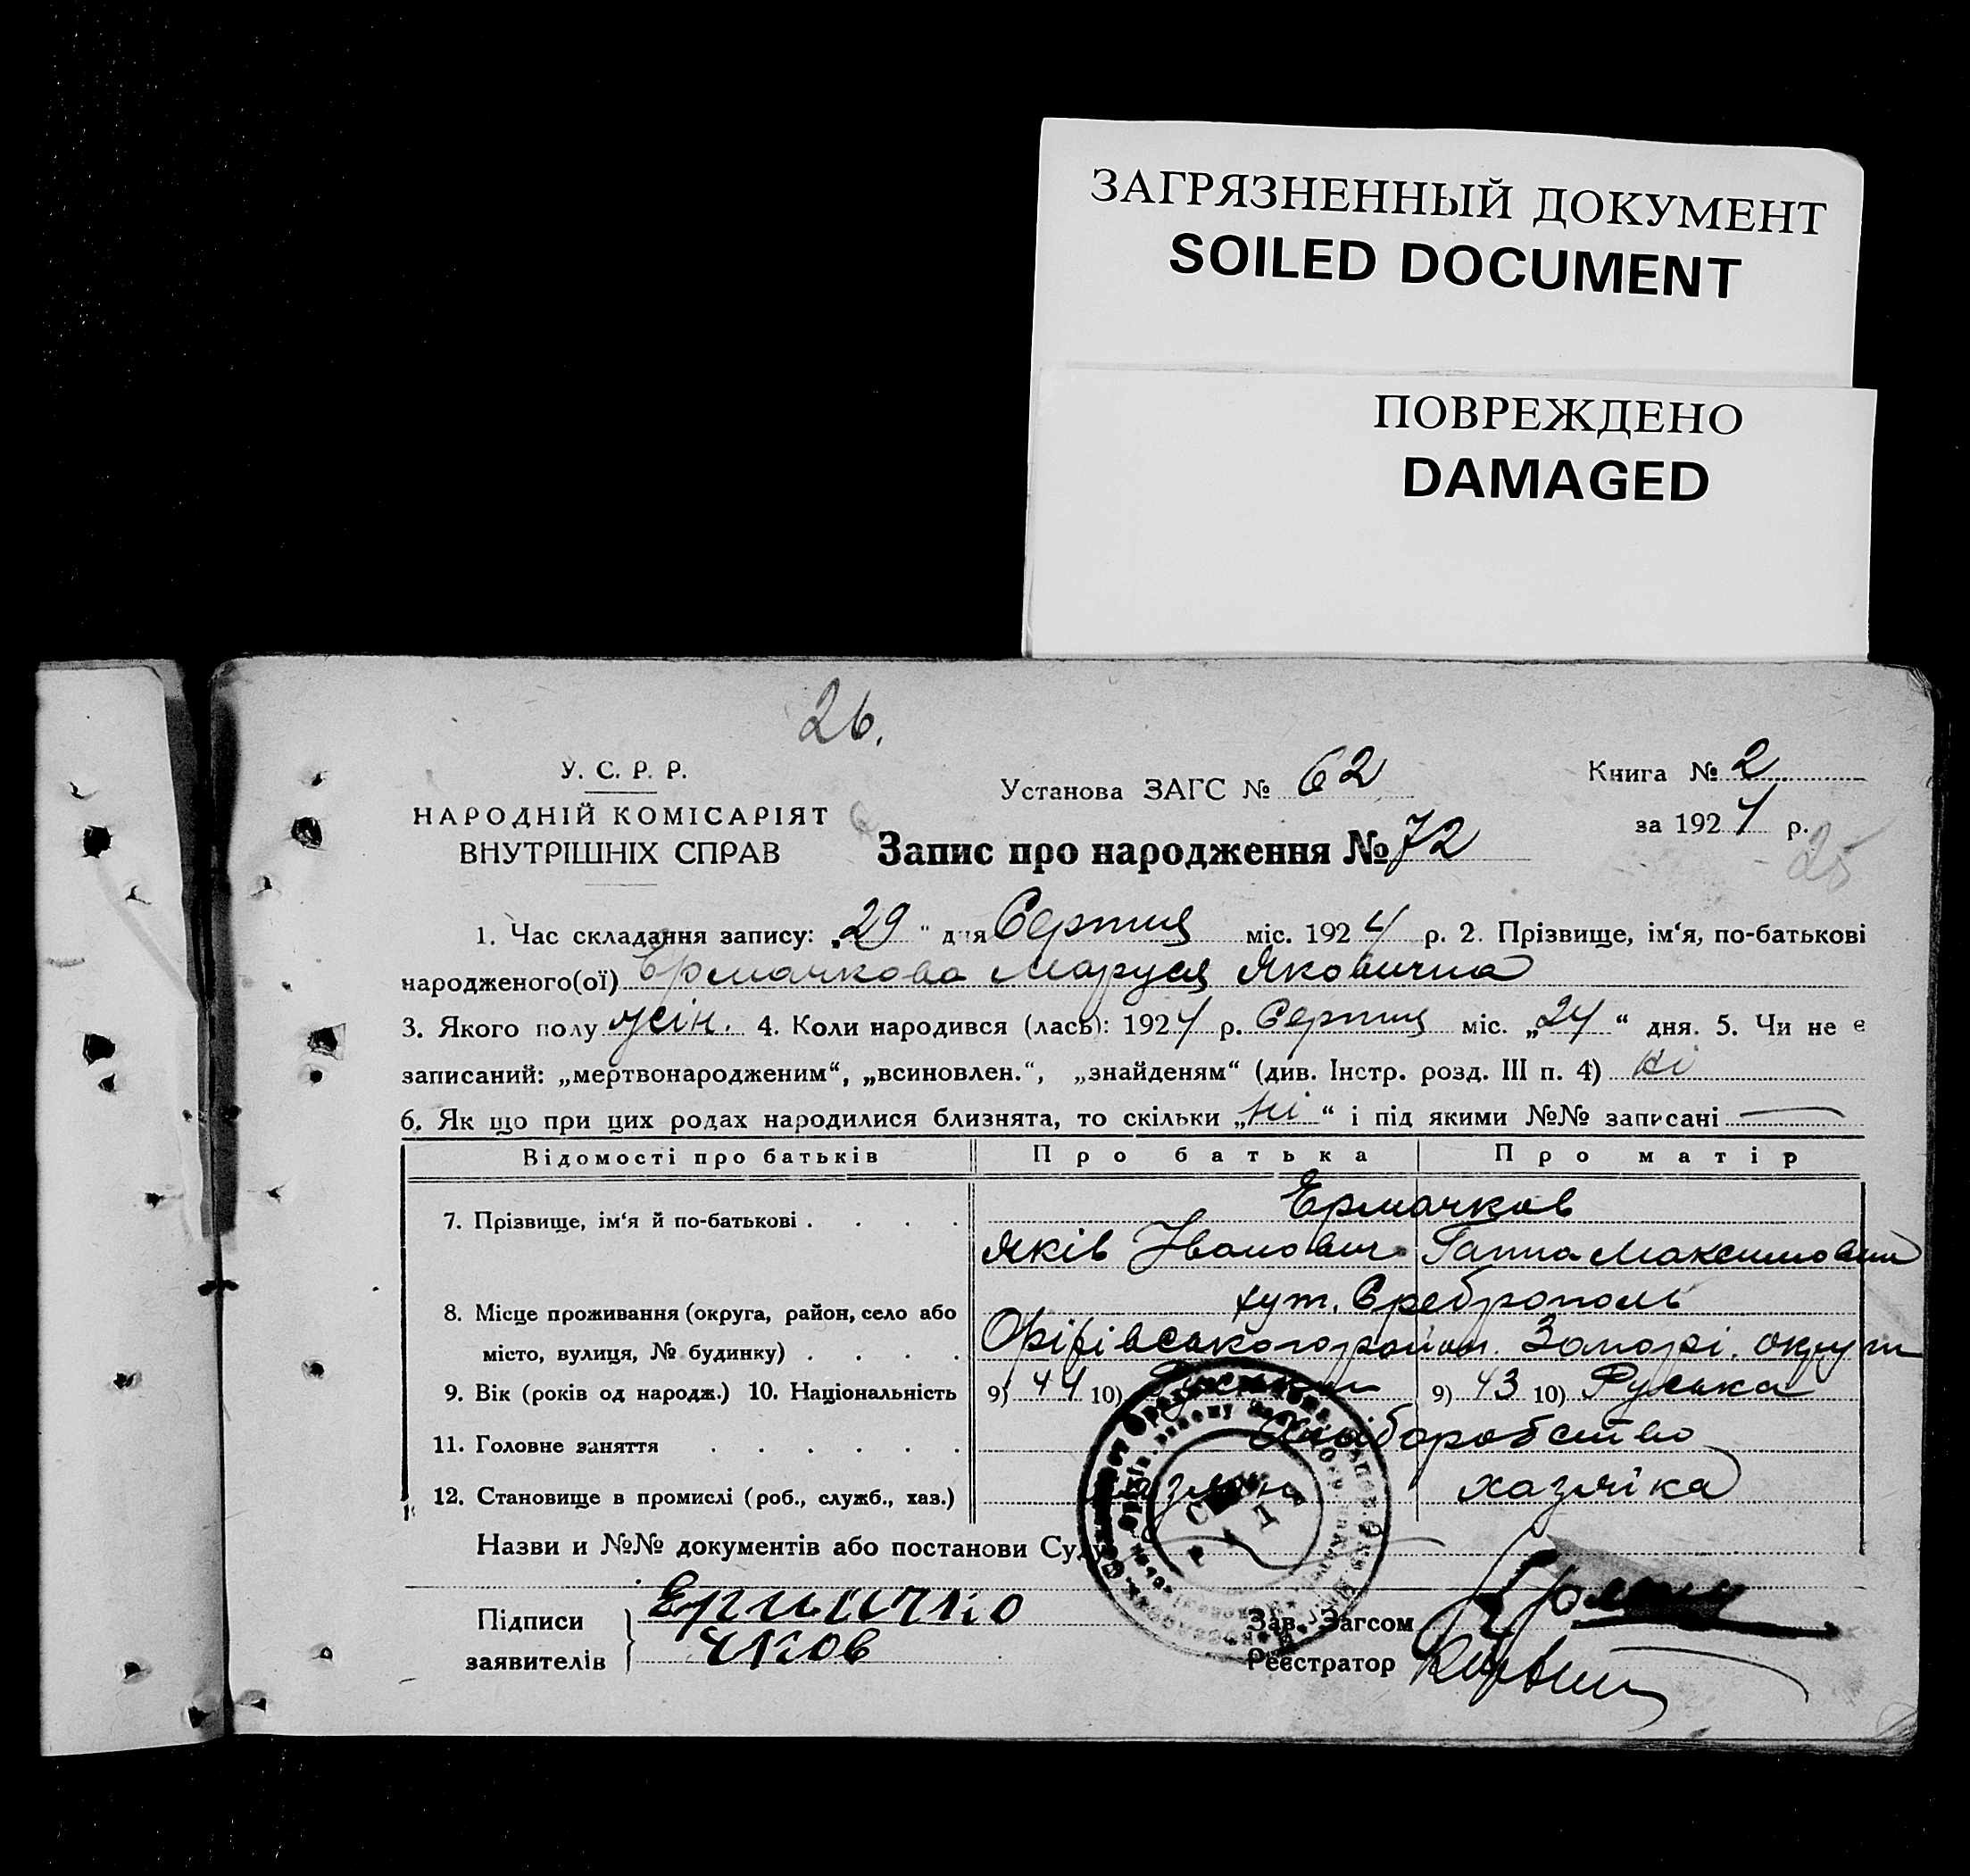 ЗАГРЯЗНЕННЫЙ ДОКУМЕНТ
SOILED DOCUMENT
ПОВРЕЖДЕНО
DAMAGED
26.
У. С. Р. Р.
НАРОДНІЙ КОМІСАРІЯТ
ВНУТРІШНІХ СПРАВ
Установа ЗАГС № 62
Книга № 2
за 1924 р.
25
Запис про народження № 72
1. Час складання запису: „29“ дня Серпня міс. 1924 р. 2. Прізвище, ім‘я, по-батькові
народженого(ої) Ермачкова Маруся Яковична
3. Якого полу жін. 4. Коли народився (лась): 1924 р. Серпня міс. „24“ дня. 5. Чи не є
записаний: „мертвонародженим“, „всиновлен.“, „знайденям“ (див. Інстр. розд. III п. 4) ні
6. Як що при цих родах народилися близнята, то скільки „ні“ і під якими №№ записані —
Відомості про батьків Про батька Про матір
7. Прізвище, ім‘я й по-батькові . . . . Ермачков
Яків Іванович Ганна Максимовна
8. Місце проживання (округа, район, село або хут. Среброполь
місто, вулиця, № будинку) . . . . Оріхівського район. Запорі. округи
9. Вік (років од народж.) 10. Національність 9) 44 10) 9) 43 10) Руська
11. Головне заняття . . . . . . Хліборобство
12. Становище в промислі (роб., служб., хаз.) хазяін хазяіка
Назви и №№ документів або постанови Суду
Підписи Ермачко
заявителів чков
Зав. Загсом
Реєстратор